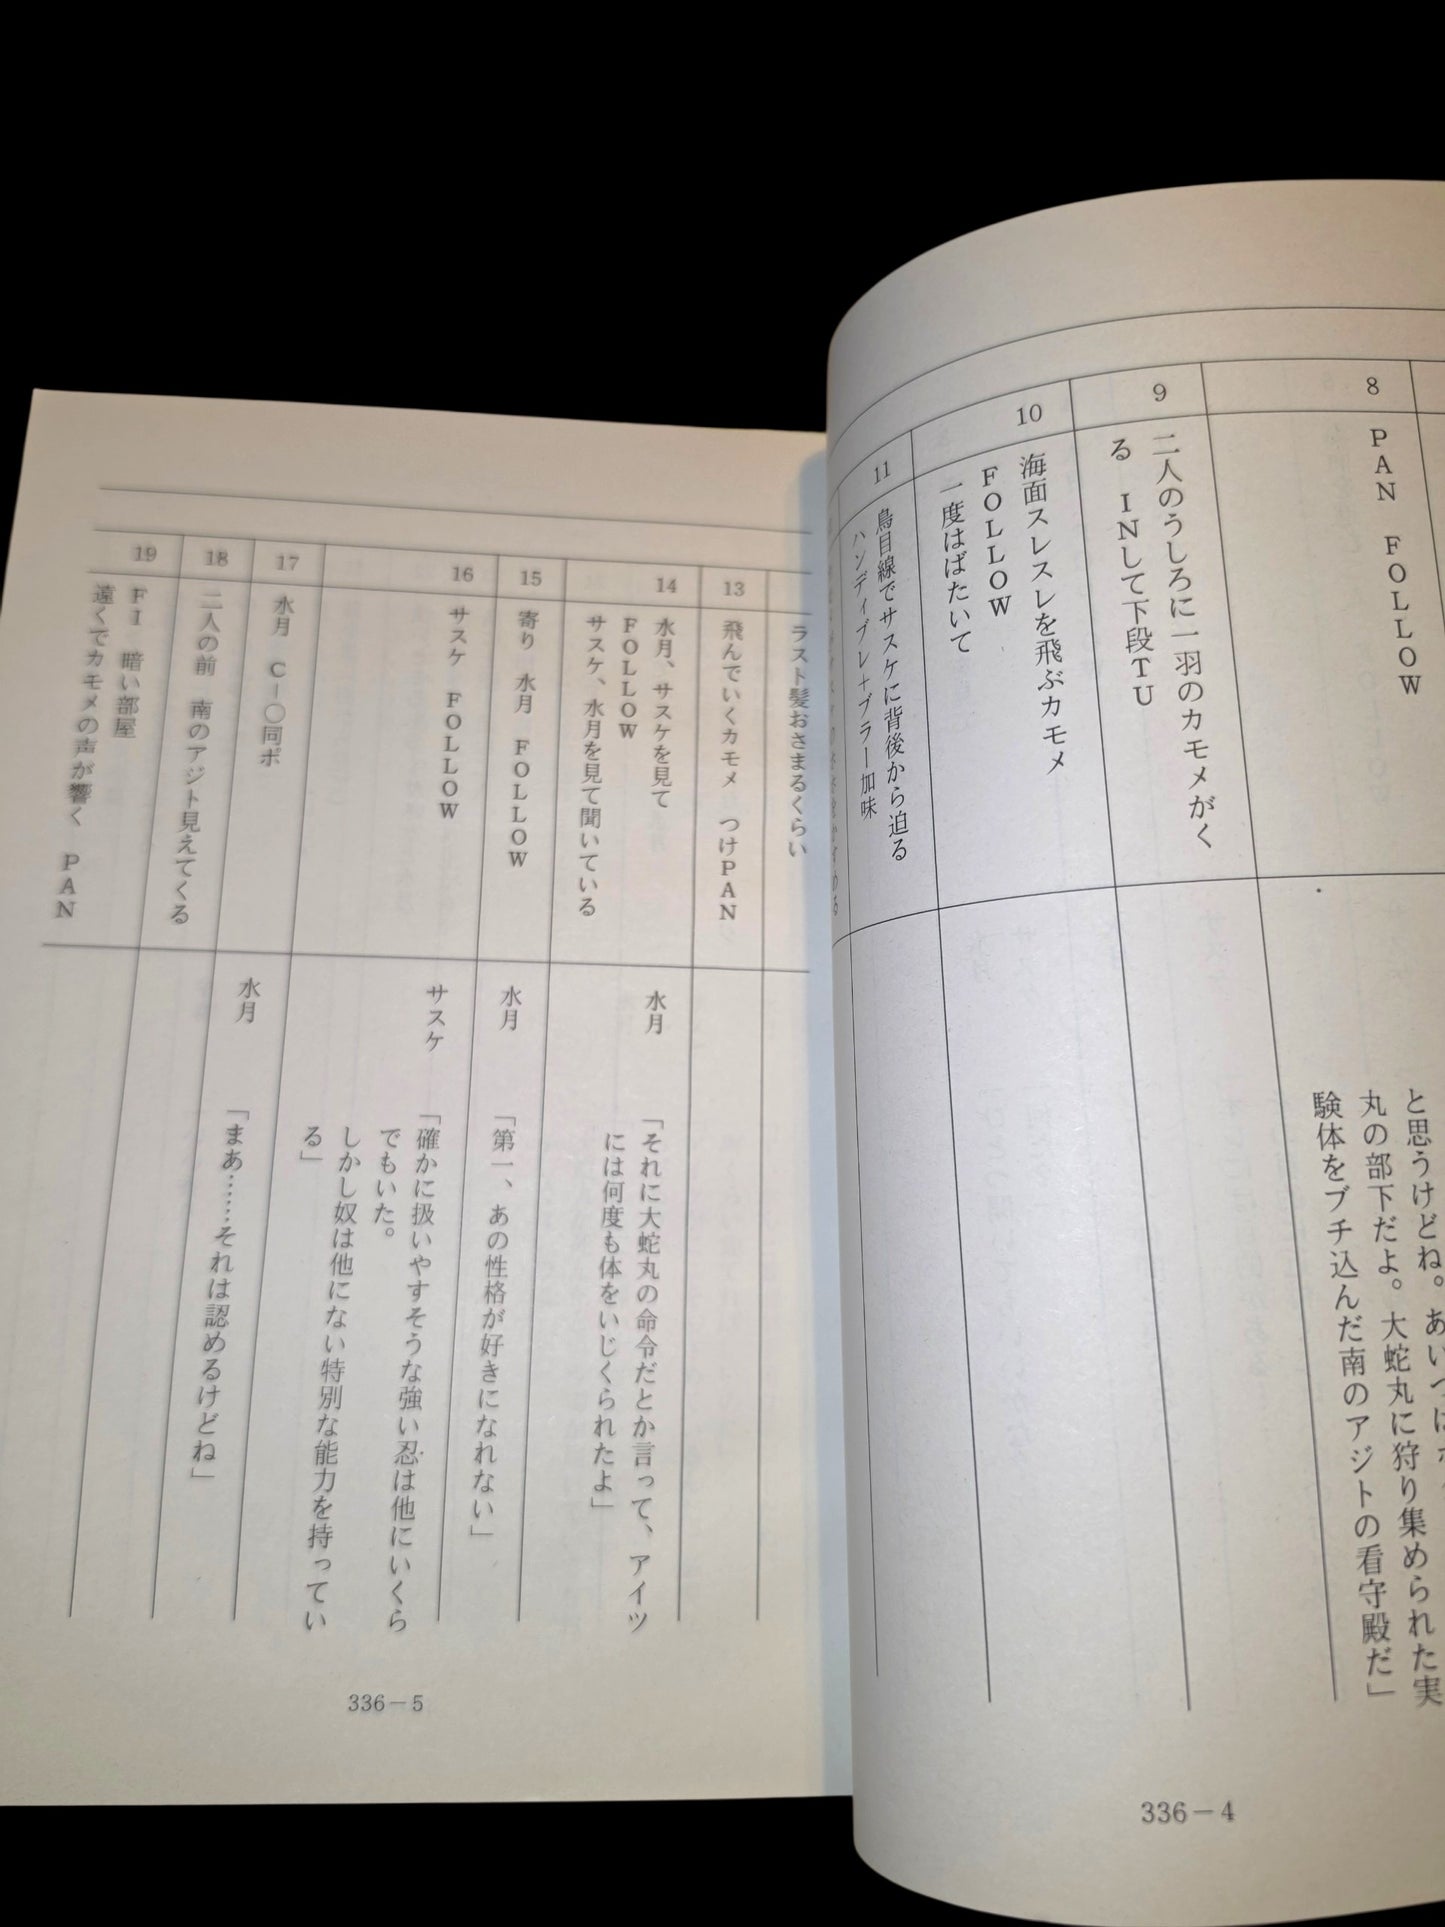 8
PAN FOLLOW
と思うけどね。あいつは
丸の部下だよ。大蛇丸に狩り集められた実
験体をブチ込んだ南のアジトの看守殿だ」
9
二人のうしろに一羽のカモメがく
る INして下段TU
10
海面スレスレを飛ぶカモメ
FOLLOW
一度はばたいて
11
鳥目線でサスケに背後から迫る
ハンディブレ+ブラー加味
336-4
ラスト髪おさまるくらい
13
飛んでいくカモメ つけPAN
14
水月、サスケを見て
FOLLOW
サスケ、水月を見て聞いている
水月
「それに大蛇丸の命令だとか言って、アイツ
には何度も体をいじくられたよ」
15
寄り 水月 FOLLOW
水月
「第一、あの性格が好きになれない」
16
サスケ FOLLOW
サスケ
「確かに扱いやすそうな強い忍は他にいくら
でもいた。
しかし奴は他にない特別な能力を持ってい
る」
17
水月 C-〇同ポ
水月
「まあ……それは認めるけどね」
18
二人の前 南のアジト見えてくる
19
FI 暗い部屋
遠くでカモメの声が響く PAN
336-5